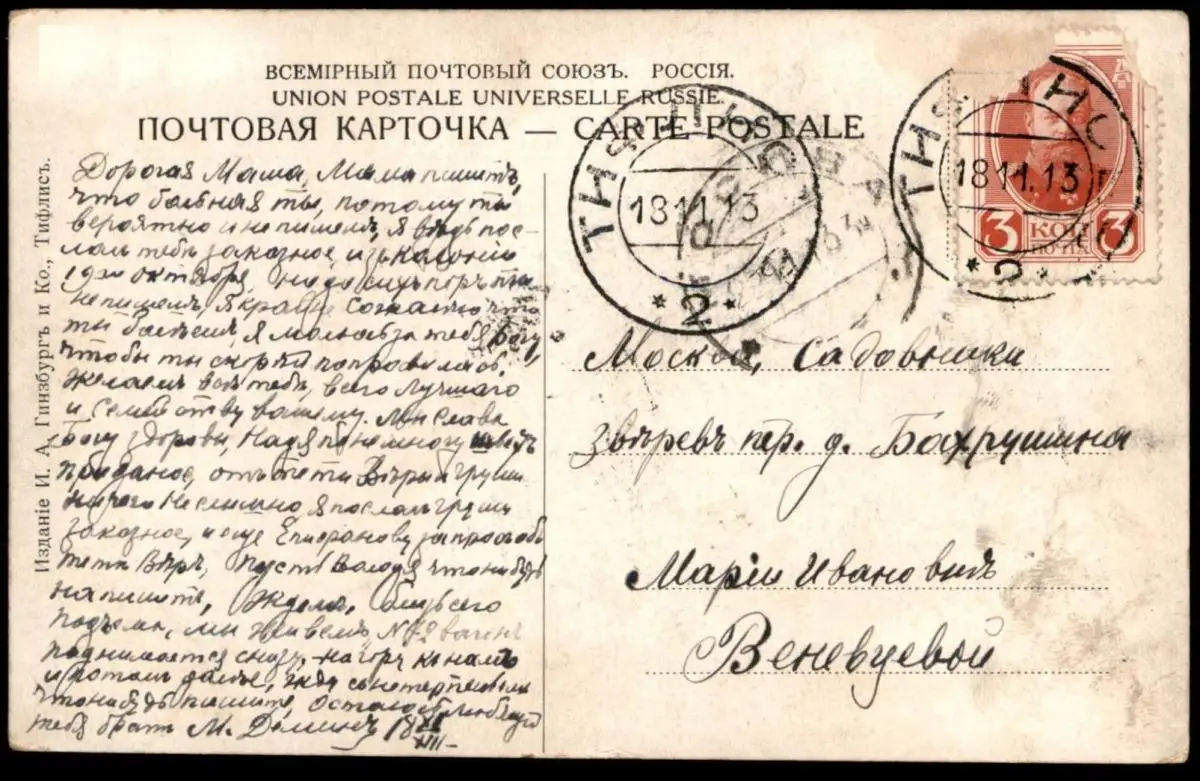 ВСЕМІРНЫЙ ПОЧТОВЫЙ СОЮЗЪ. РОССІЯ.
UNION POSTALE UNIVERSELLE RUSSIE.
ПОЧТОВАЯ КАРТОЧКА — CARTE POSTALE
Изданіе И. А. Гинзбургъ и Ко., Тифлисъ.
Дорогая Мама, Мама пишитъ,
что больная ты, потому ты
вероятно и не пишешь, я вѣдь пос-
лалъ тебѣ заказное, изъ
октября, но до сихъ поръ ты
не пишешь, я крайне что
ты болѣешь, я молюсь за тебя Богу,
чтобы ты скорѣй поправилась,
желаемъ всѣ тебѣ, всего лучшаго
и семейству вашему. Мы слава
Богу здоровы, Надя понемногу шьетъ
приданое, отъ тети Вѣры и Груши
ничего не слышно я послалъ Груши
заказное, и еще Епифанову
тети Вѣрѣ, пусть Володя что нибудь
напишитъ, Ждемъ,
подъема, мы живемъ, вагонъ
поднимается снизу, на гору
и потомъ далѣе, жду съ нетерпеніемъ
что нибудь пишите, Остаюсь любящій
тебя братъ М. Деминъ 18
ТИФЛИСЪ
18 11. 13
2
ТИФЛИСЪ
18 11. 13
2
3 КОП 3
Москва, Садовники
Звѣревъ пер. д. Бахрушина
Маріи Ивановнѣ
Веневцевой